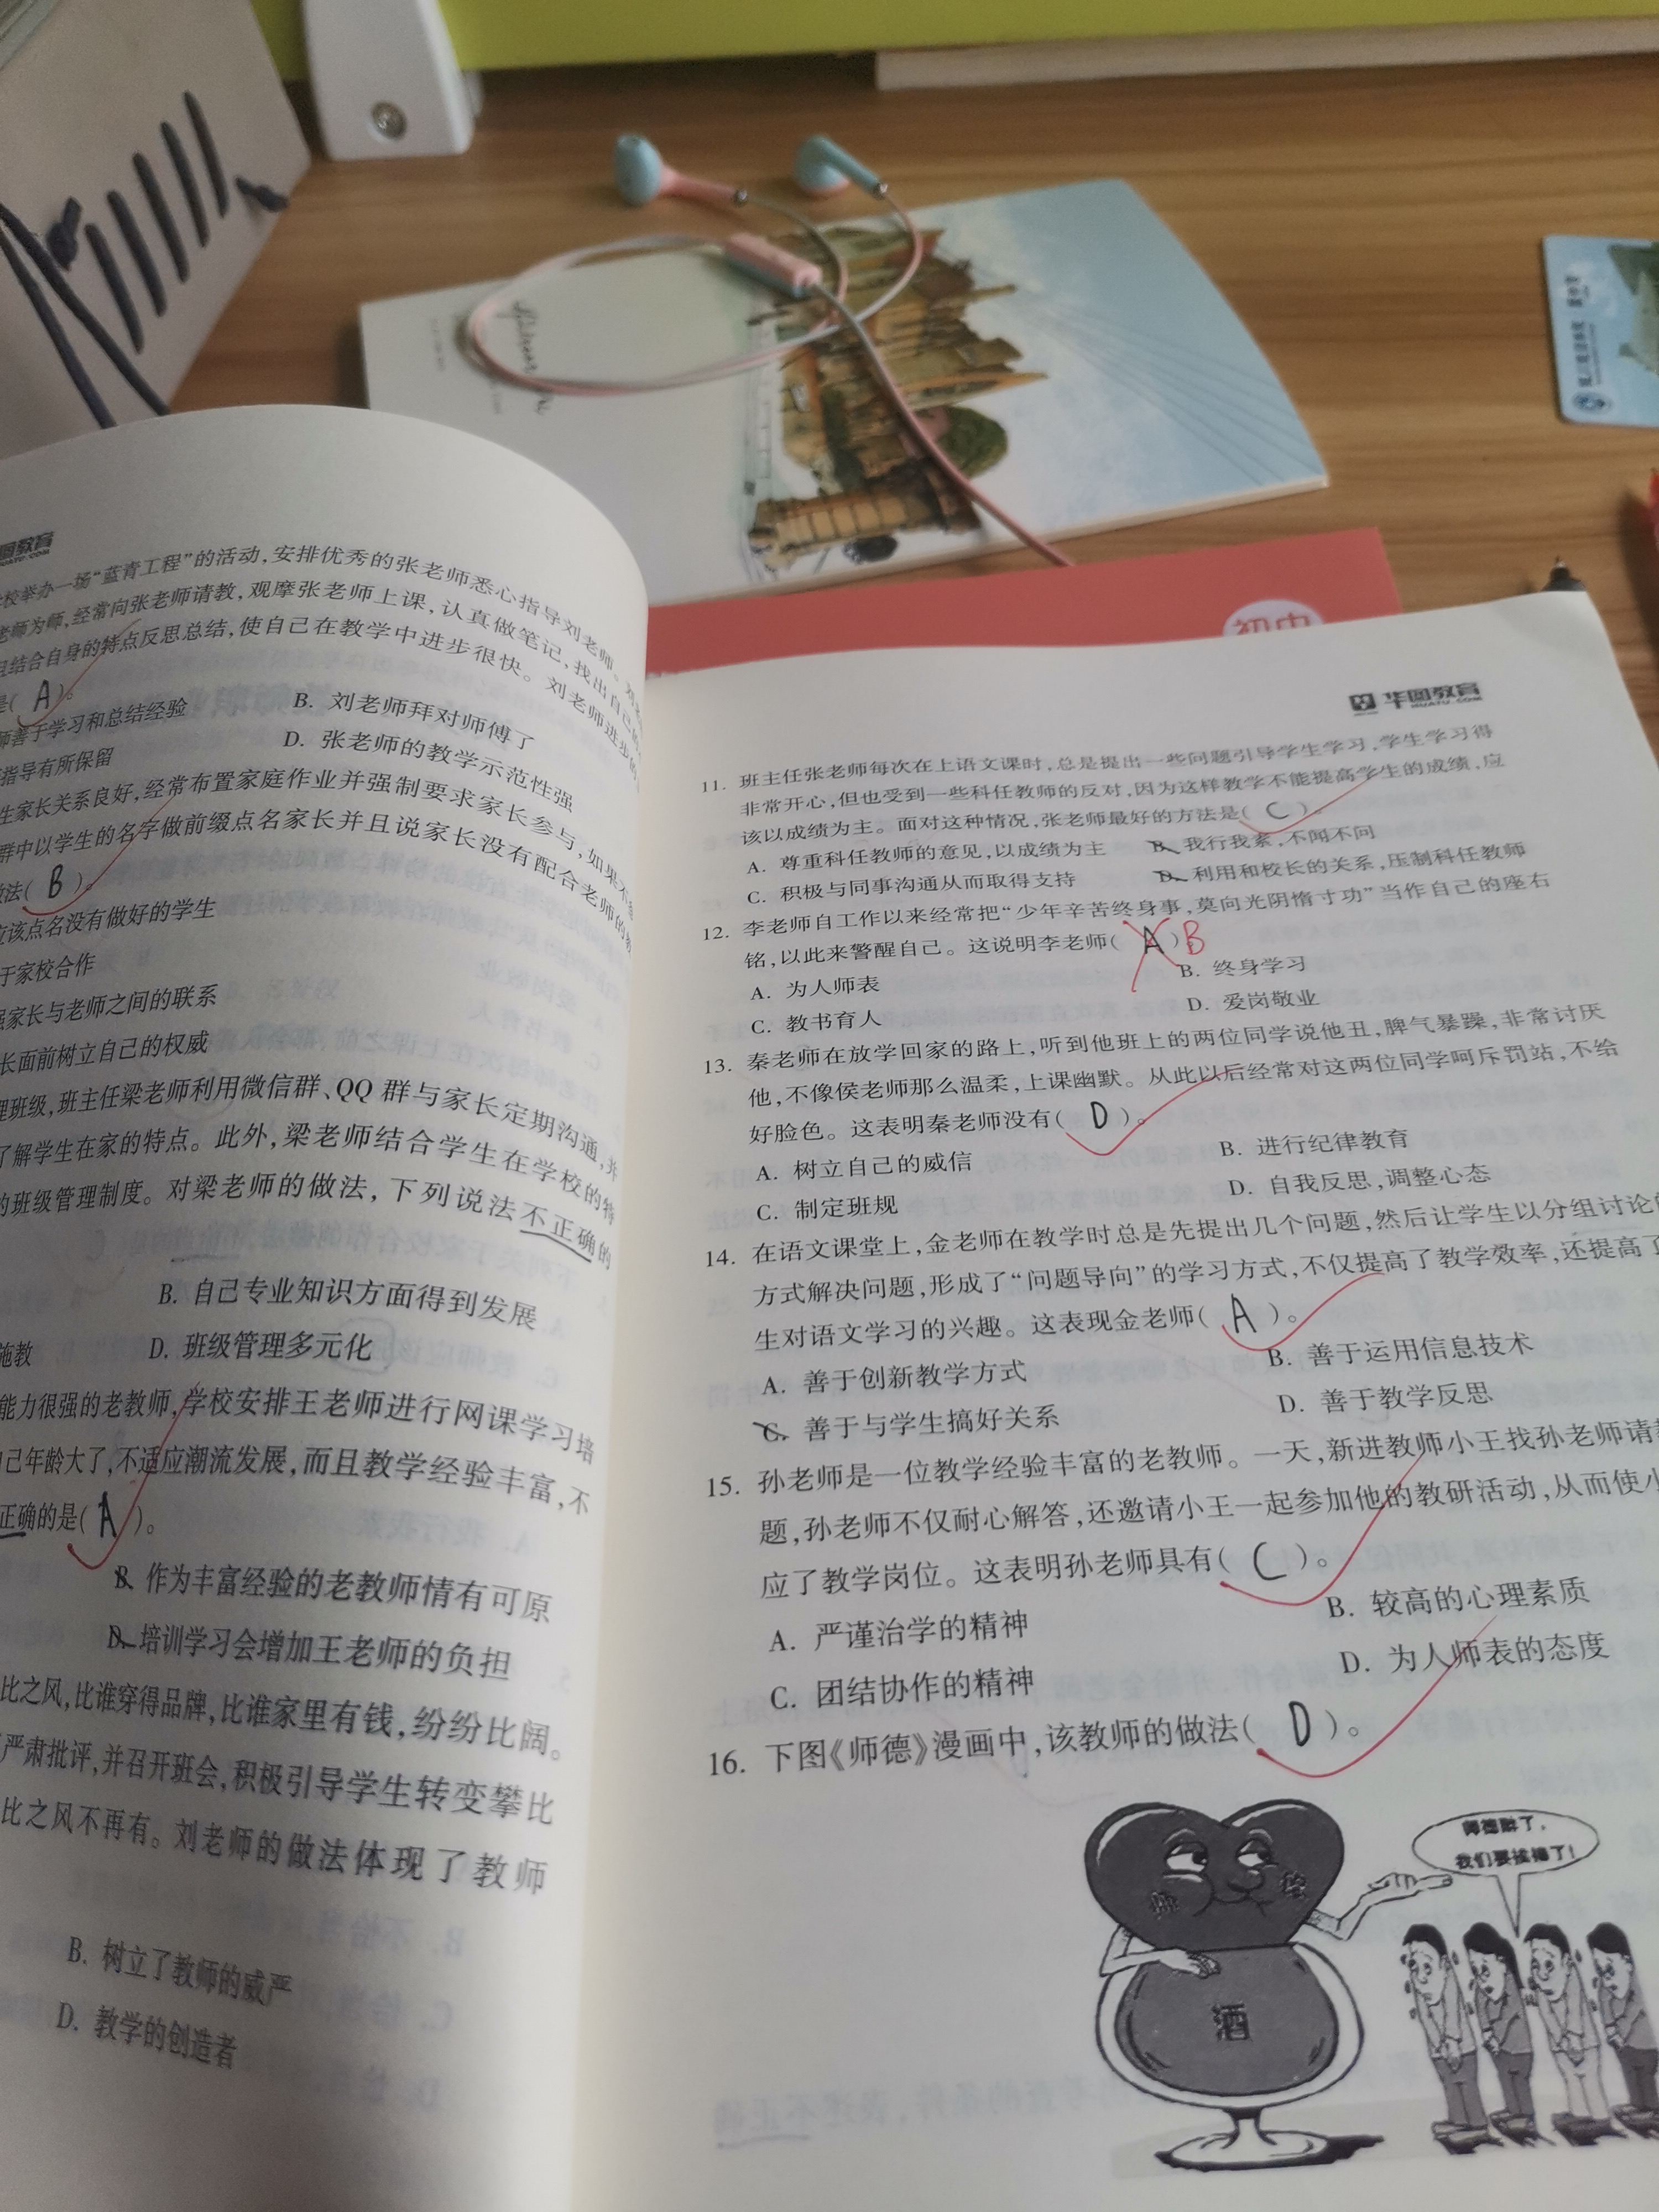 初中
校举办一场“蓝青工程”的活动,安排优秀的张老师悉心指导刘老师。
老师为师,经常向张老师请教,观摩张老师上课,认真做笔记,找出自己
且结合自身的特点反思总结,使自己在教学中进步很快。刘老师进步的
是( A )。
师善于学习和总结经验
B. 刘老师拜对师傅了
指导有所保留
D. 张老师的教学示范性强
生家长关系良好,经常布置家庭作业并强制要求家长参与,如果不
群中以学生的名字做前缀点名家长并且说家长没有配合老师的教
做法( B )。
应该点名没有做好的学生
于家校合作
强家长与老师之间的联系
长面前树立自己的权威
理班级,班主任梁老师利用微信群、QQ 群与家长定期沟通,并
了解学生在家的特点。此外,梁老师结合学生在学校的特
的班级管理制度。对梁老师的做法,下列说法不正确的
B. 自己专业知识方面得到发展
施教
D. 班级管理多元化
能力很强的老教师,学校安排王老师进行网课学习培
自己年龄大了,不适应潮流发展,而且教学经验丰富,不
正确的是( A )。
B. 作为丰富经验的老教师情有可原
D. 培训学习会增加王老师的负担
比之风,比谁穿得品牌,比谁家里有钱,纷纷比阔。
严肃批评,并召开班会,积极引导学生转变攀比
比之风不再有。刘老师的做法体现了教师
B. 树立了教师的威严
D. 教学的创造者
华图教育
HUATU.COM
11. 班主任张老师每次在上语文课时,总是提出一些问题引导学生学习,学生学习得
非常开心,但也受到一些科任教师的反对,因为这样教学不能提高学生的成绩,应
该以成绩为主。面对这种情况,张老师最好的方法是( C )。
A. 尊重科任教师的意见,以成绩为主 B. 我行我素,不闻不问
C. 积极与同事沟通从而取得支持 D. 利用和校长的关系,压制科任教师
12. 李老师自工作以来经常把“少年辛苦终身事,莫向光阴惰寸功”当作自己的座右
铭,以此来警醒自己。这说明李老师( A ) B
A. 为人师表 B. 终身学习
C. 教书育人 D. 爱岗敬业
13. 秦老师在放学回家的路上,听到他班上的两位同学说他丑,脾气暴躁,非常讨厌
他,不像侯老师那么温柔,上课幽默。从此以后经常对这两位同学呵斥罚站,不给
好脸色。这表明秦老师没有( D )。
A. 树立自己的威信 B. 进行纪律教育
C. 制定班规 D. 自我反思,调整心态
14. 在语文课堂上,金老师在教学时总是先提出几个问题,然后让学生以分组讨论的
方式解决问题,形成了“问题导向”的学习方式,不仅提高了教学效率,还提高了
生对语文学习的兴趣。这表现金老师( A )。
A. 善于创新教学方式 B. 善于运用信息技术
C. 善于与学生搞好关系 D. 善于教学反思
15. 孙老师是一位教学经验丰富的老教师。一天,新进教师小王找孙老师请教
题,孙老师不仅耐心解答,还邀请小王一起参加他的教研活动,从而使小
应了教学岗位。这表明孙老师具有( C )。
A. 严谨治学的精神 B. 较高的心理素质
C. 团结协作的精神 D. 为人师表的态度
16. 下图《师德》漫画中,该教师的做法( D )。
师德醉了,
我们要挨揍了!
师 德
酒